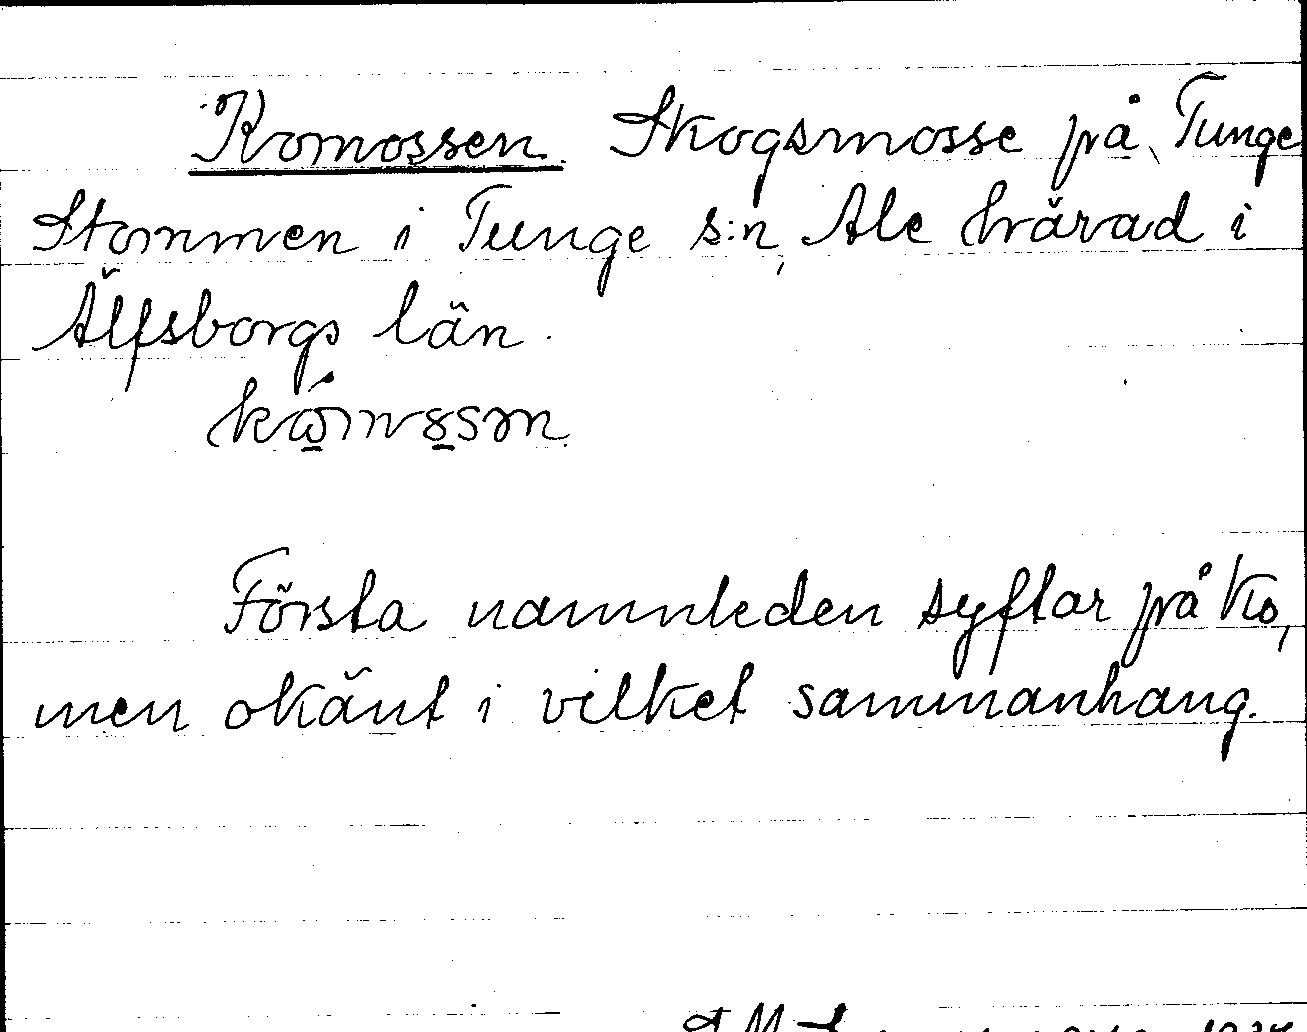 Komossen. Skogsmosse på Tunge
Stommen i Tunge s:n, Ale härad i
Älfsborgs län.
Första namnleden syftar på ko,
men okänt i vilket sammanhang.